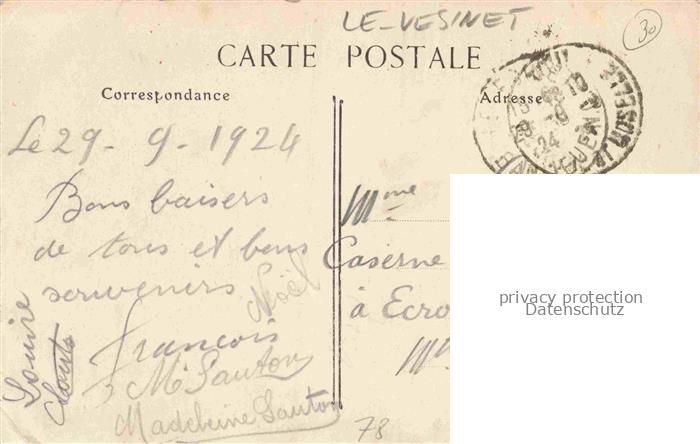 LE-VESINET
30
CARTE POSTALE
Correspondance
Adresse
Le 29-9-1924
Bons baisers
de tous et bons
souvenirs
Noël
François
Louise
M Sauton
Madeleine Sauton
Mme
Caserne
à Ecro
privacy protection
Datenschutz
78